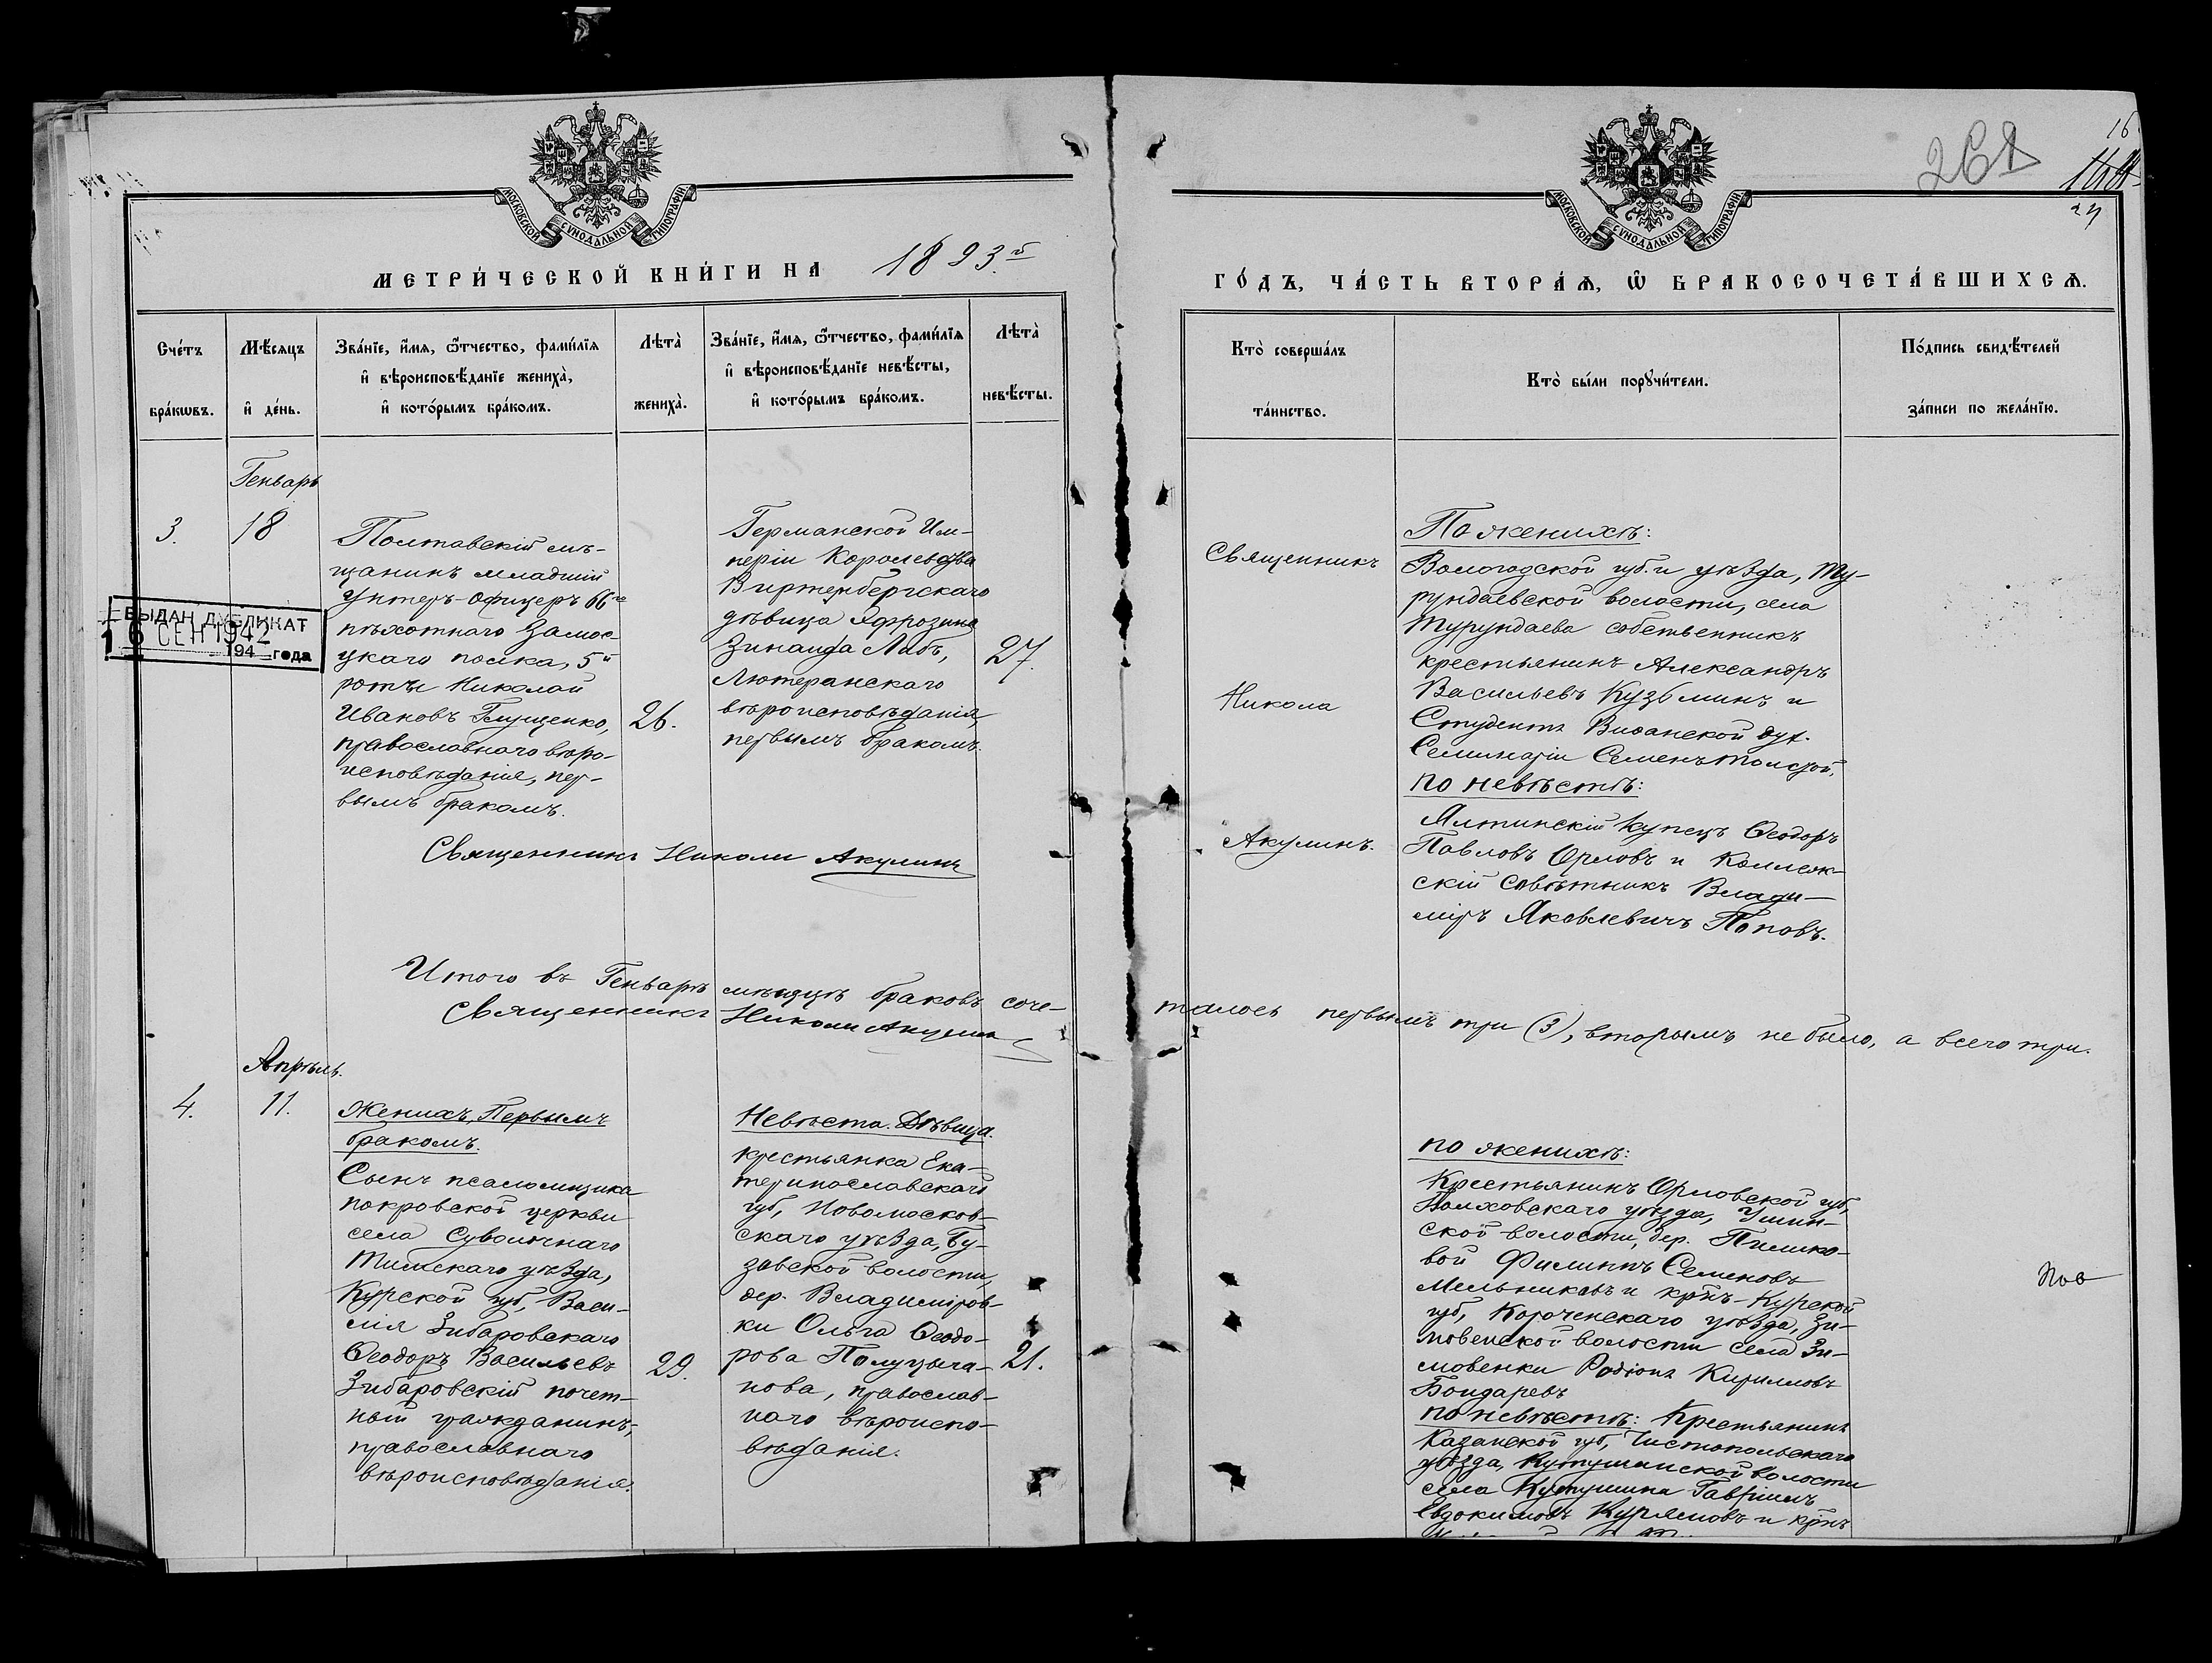 268
16
МОСКОВСКОЙ СѴНОДАЛЬНОЙ ТИПОГРАФІИ
МОСКОВСКОЙ СѴНОДАЛЬНОЙ ТИПОГРАФІИ
МЕТРИ́ЧЕСКОЙ КНИ́ГИ НА 1893.й
ГО́ДЪ, ЧА́СТЬ ВТОРА́Ѧ, Ѡ҆ БРАКОСОЧЕТА́ВШИХСѦ.
Сче́тъ
бра́кѡвъ.
Мѣ́сяцъ
и҆ де́нь.
Зва́нїе, и҆́мя, ѻ҆́тчество, фами́лїя
и҆ вѣроисповѣ́данїе жениха̀,
и҆ кото́рымъ бра́комъ.
Лѣта̀
жениха̀.
Зва́нїе, и҆́мя, ѻ҆́тчество, фами́лїя
и҆ вѣроисповѣ́данїе невѣ́сты,
и҆ кото́рымъ бра́комъ.
Лѣта̀
невѣ́сты.
Кто̀ соверша́лъ
та́инство.
Кто̀ бы́ли порꙋчи́тели.
По́дпись свидѣ́телей
за́писи по жела́нїю.
Генварь
3.
18
Полтавскій мѣ-
щанинъ младшій
унтеръ-офицеръ 66го
пѣхотнаго Замос-
цкаго полка, 5й
роты Николай
Ивановъ Глущенко,
православнаго вѣро-
исповѣданія, пер-
вымъ бракомъ.
26.
Германской Им-
періи Королевства
Виртенбергскаго
дѣвица Яфрозина
Зинаида Лаубъ,
Лютеранскаго
вѣроисповѣданія,
первымъ бракомъ.
27.
Священникъ
Никола
Акулинъ.
По женихѣ:
Вологодской губ. и уѣзда, Ту-
рундаевской волости, села
Турундаева собственникъ
крестьянинъ Александръ
Васильевъ Кузьминъ и
Студентъ Виѳанской дух.
Семинаріи Семенъ Толстой.
по невѣстѣ:
Ялтинскій купецъ Ѳеодоръ
Павловъ Орловъ и Коллеж-
скій совѣтникъ Влади-
міръ Яковлевичъ Поповъ.
ВЫДАН ДУБЛИКАТ
16 СЕН 1942
194 года
Священникъ Николай Акулинъ
Итого въ Генварѣ мѣсяцѣ браковъ соче-
талось первымъ три (3), вторымъ не было, а всего три.
Священникъ Николай Акулинъ
Апрѣль.
4.
11.
Женихъ, Первымъ
бракомъ.
Сынъ псаломщика
покровской церкви
села Суволочнаго
Тимскаго уѣзда,
Курской губ, Васи-
лія Зибаровскаго
Ѳеодоръ Васильевъ
Зибаровскій почет-
ный гражданинъ,
православнаго
вѣроисповѣданія.
29.
Невѣста. Дѣвица.
крестьянка Ека-
теринославской
губ, Новомосков-
скаго уѣзда, Бу-
зовской волости,
дер. Владиміров-
ки Ольга Ѳеодо-
рова Полуцыга-
нова, православ-
наго вѣроиспо-
вѣданія.
21.
по женихѣ:
Крестьянинъ Орловской губ,
Болховскаго уѣзда,
ской волости, дер.
вой Филиппъ Семеновъ
Мельниковъ и крнъ Курской
губ, Короченскаго уѣзда, Зи-
мовенской волости села Зи-
мовенки Родіонъ Кирилловъ
Бондаревъ
по невѣстѣ: Крестьянинъ
Казанской губ, Чистопольскаго
уѣзда, Кутушинской волости
села Кутушина Гавріилъ
Евдокимовъ и крнъ